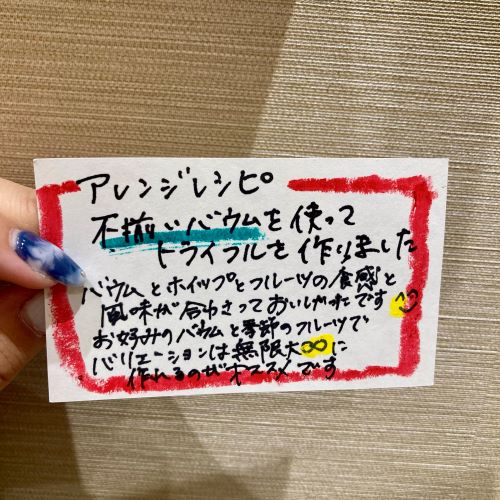 アレンジレシピ
不揃いバウムを使って
トライフルを作りました
バウムとホイップとフルーツの食感と
風味が合わさっておいしかったです
お好みのバウムと季節のフルーツで
バリエーションは無限大∞に
作れるのがオススメです